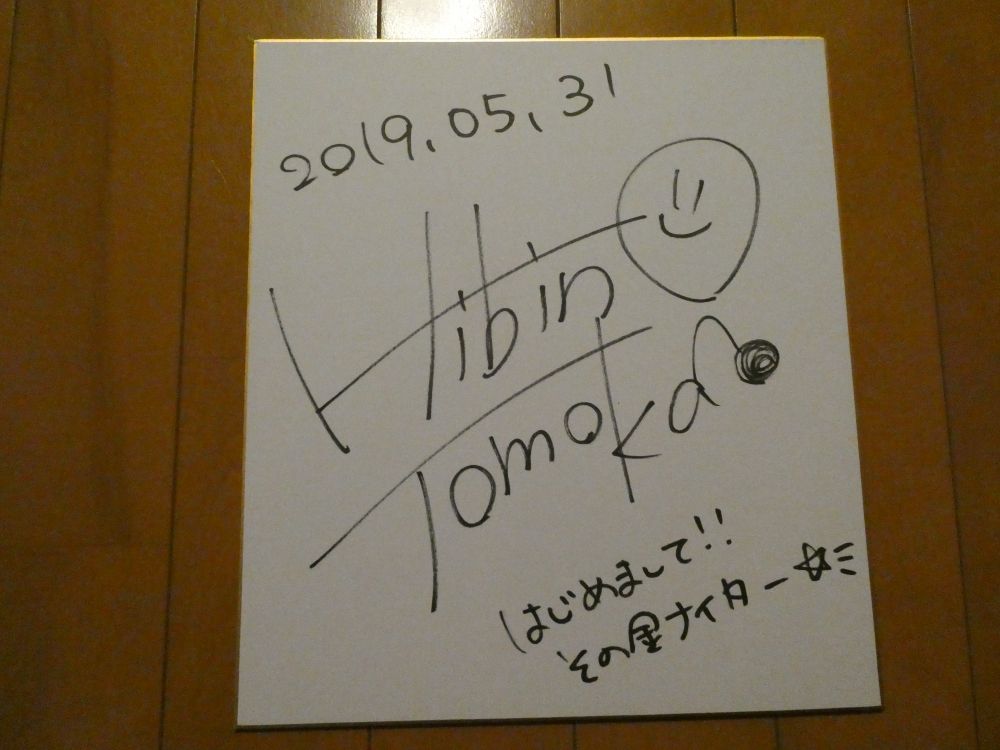 2019.05.31
Hibin
Tomoka
はじめまして!!
その金ナイター☆